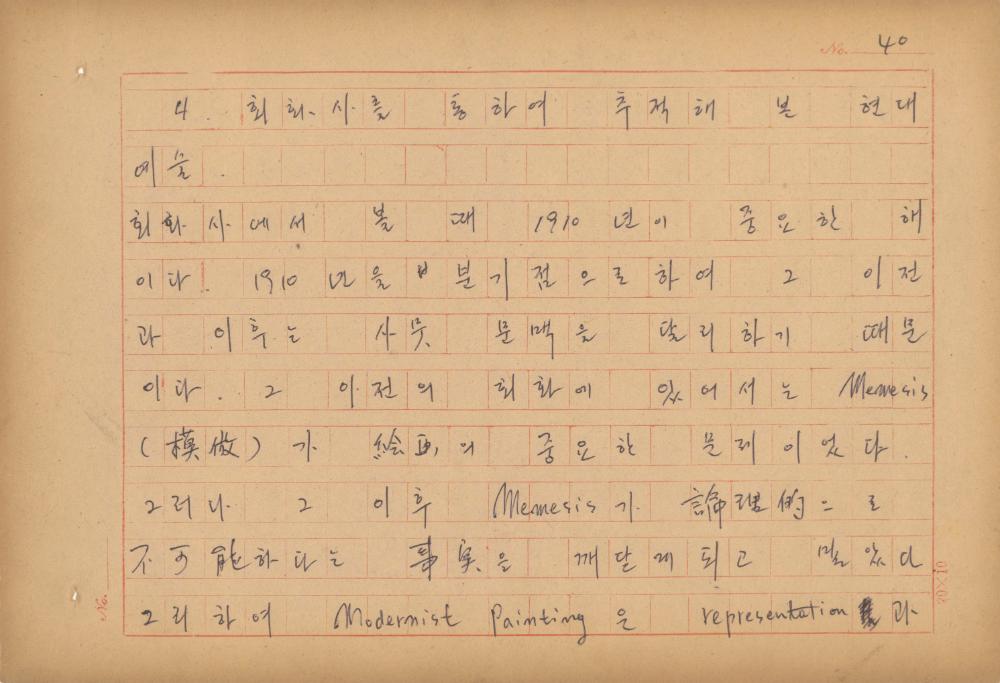 No. 40
4. 회화사를 통하여 추적해 본 현대
예술.
회화사에서 볼 때 1910년이 중요한 해
이다. 1910년을 분기점으로 하여 그 이전
과 이후는 사뭇 문맥을 달리하기 때문
이다. 그 이전의 회화에 있어서는 Memesis
(模倣)가 絵画의 중요한 문제이었다.
그러다 그 이후 Memesis가 論理的으로
不可能하다는 事実을 깨닫게 되고 말았다
그리하여 Modernist Painting은 representation과
20×10
No.